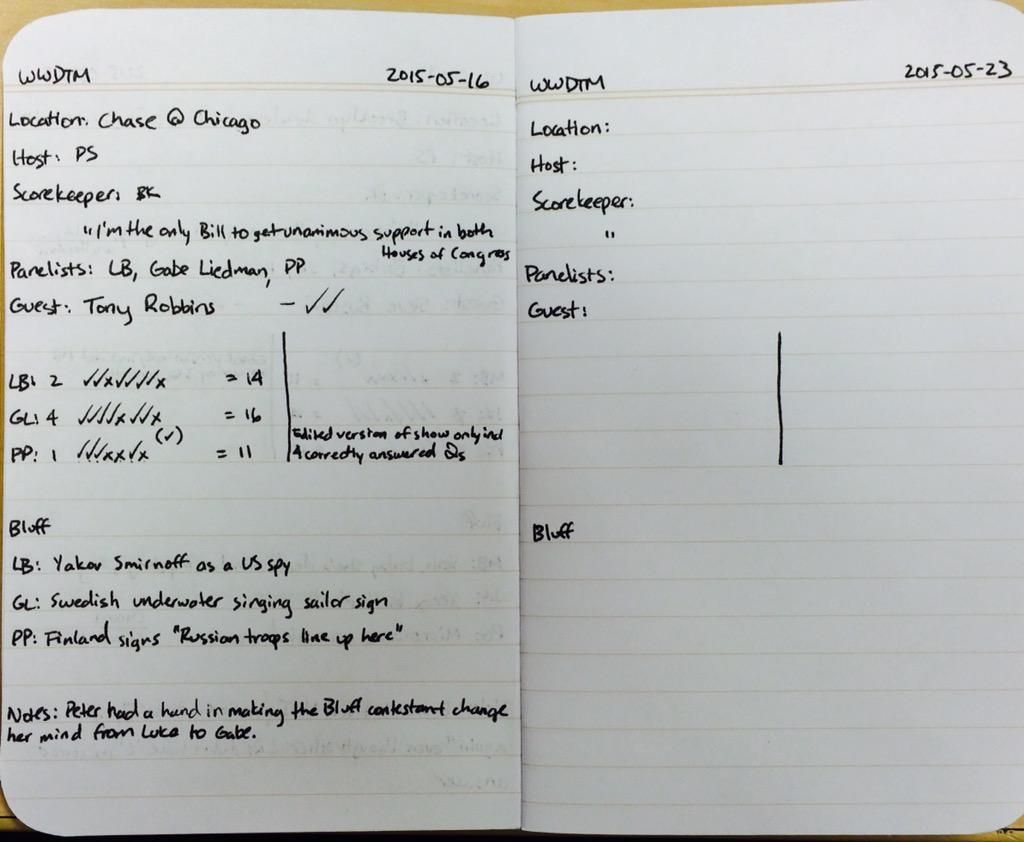 WWDTM 2015-05-16
Location: Chase @ Chicago
Host: PS
Scorekeeper: BK
"I'm the only Bill to get unanimous support in both
Houses of Congress
Panelists: LB, Gabe Liedman, PP
Guest: Tony Robbins - ✓✓
LB: 2 ✓✓x✓✓✓✓x = 14
GL: 4 ✓✓✓✓x✓✓x = 16
PP: 1 ✓✓✓xx✓x (✓) = 11
Edited version of show only incl
4 correctly answered Qs
Bluff
LB: Yakov Smirnoff as a US spy
GL: Swedish underwater singing sailor sign
PP: Finland signs "Russian troops line up here"
Notes: Peter had a hand in making the Bluff contestant change
her mind from Luke to Gabe.
WWDTM 2015-05-23
Location:
Host:
Scorekeeper:
"
Panelists:
Guest:
Bluff